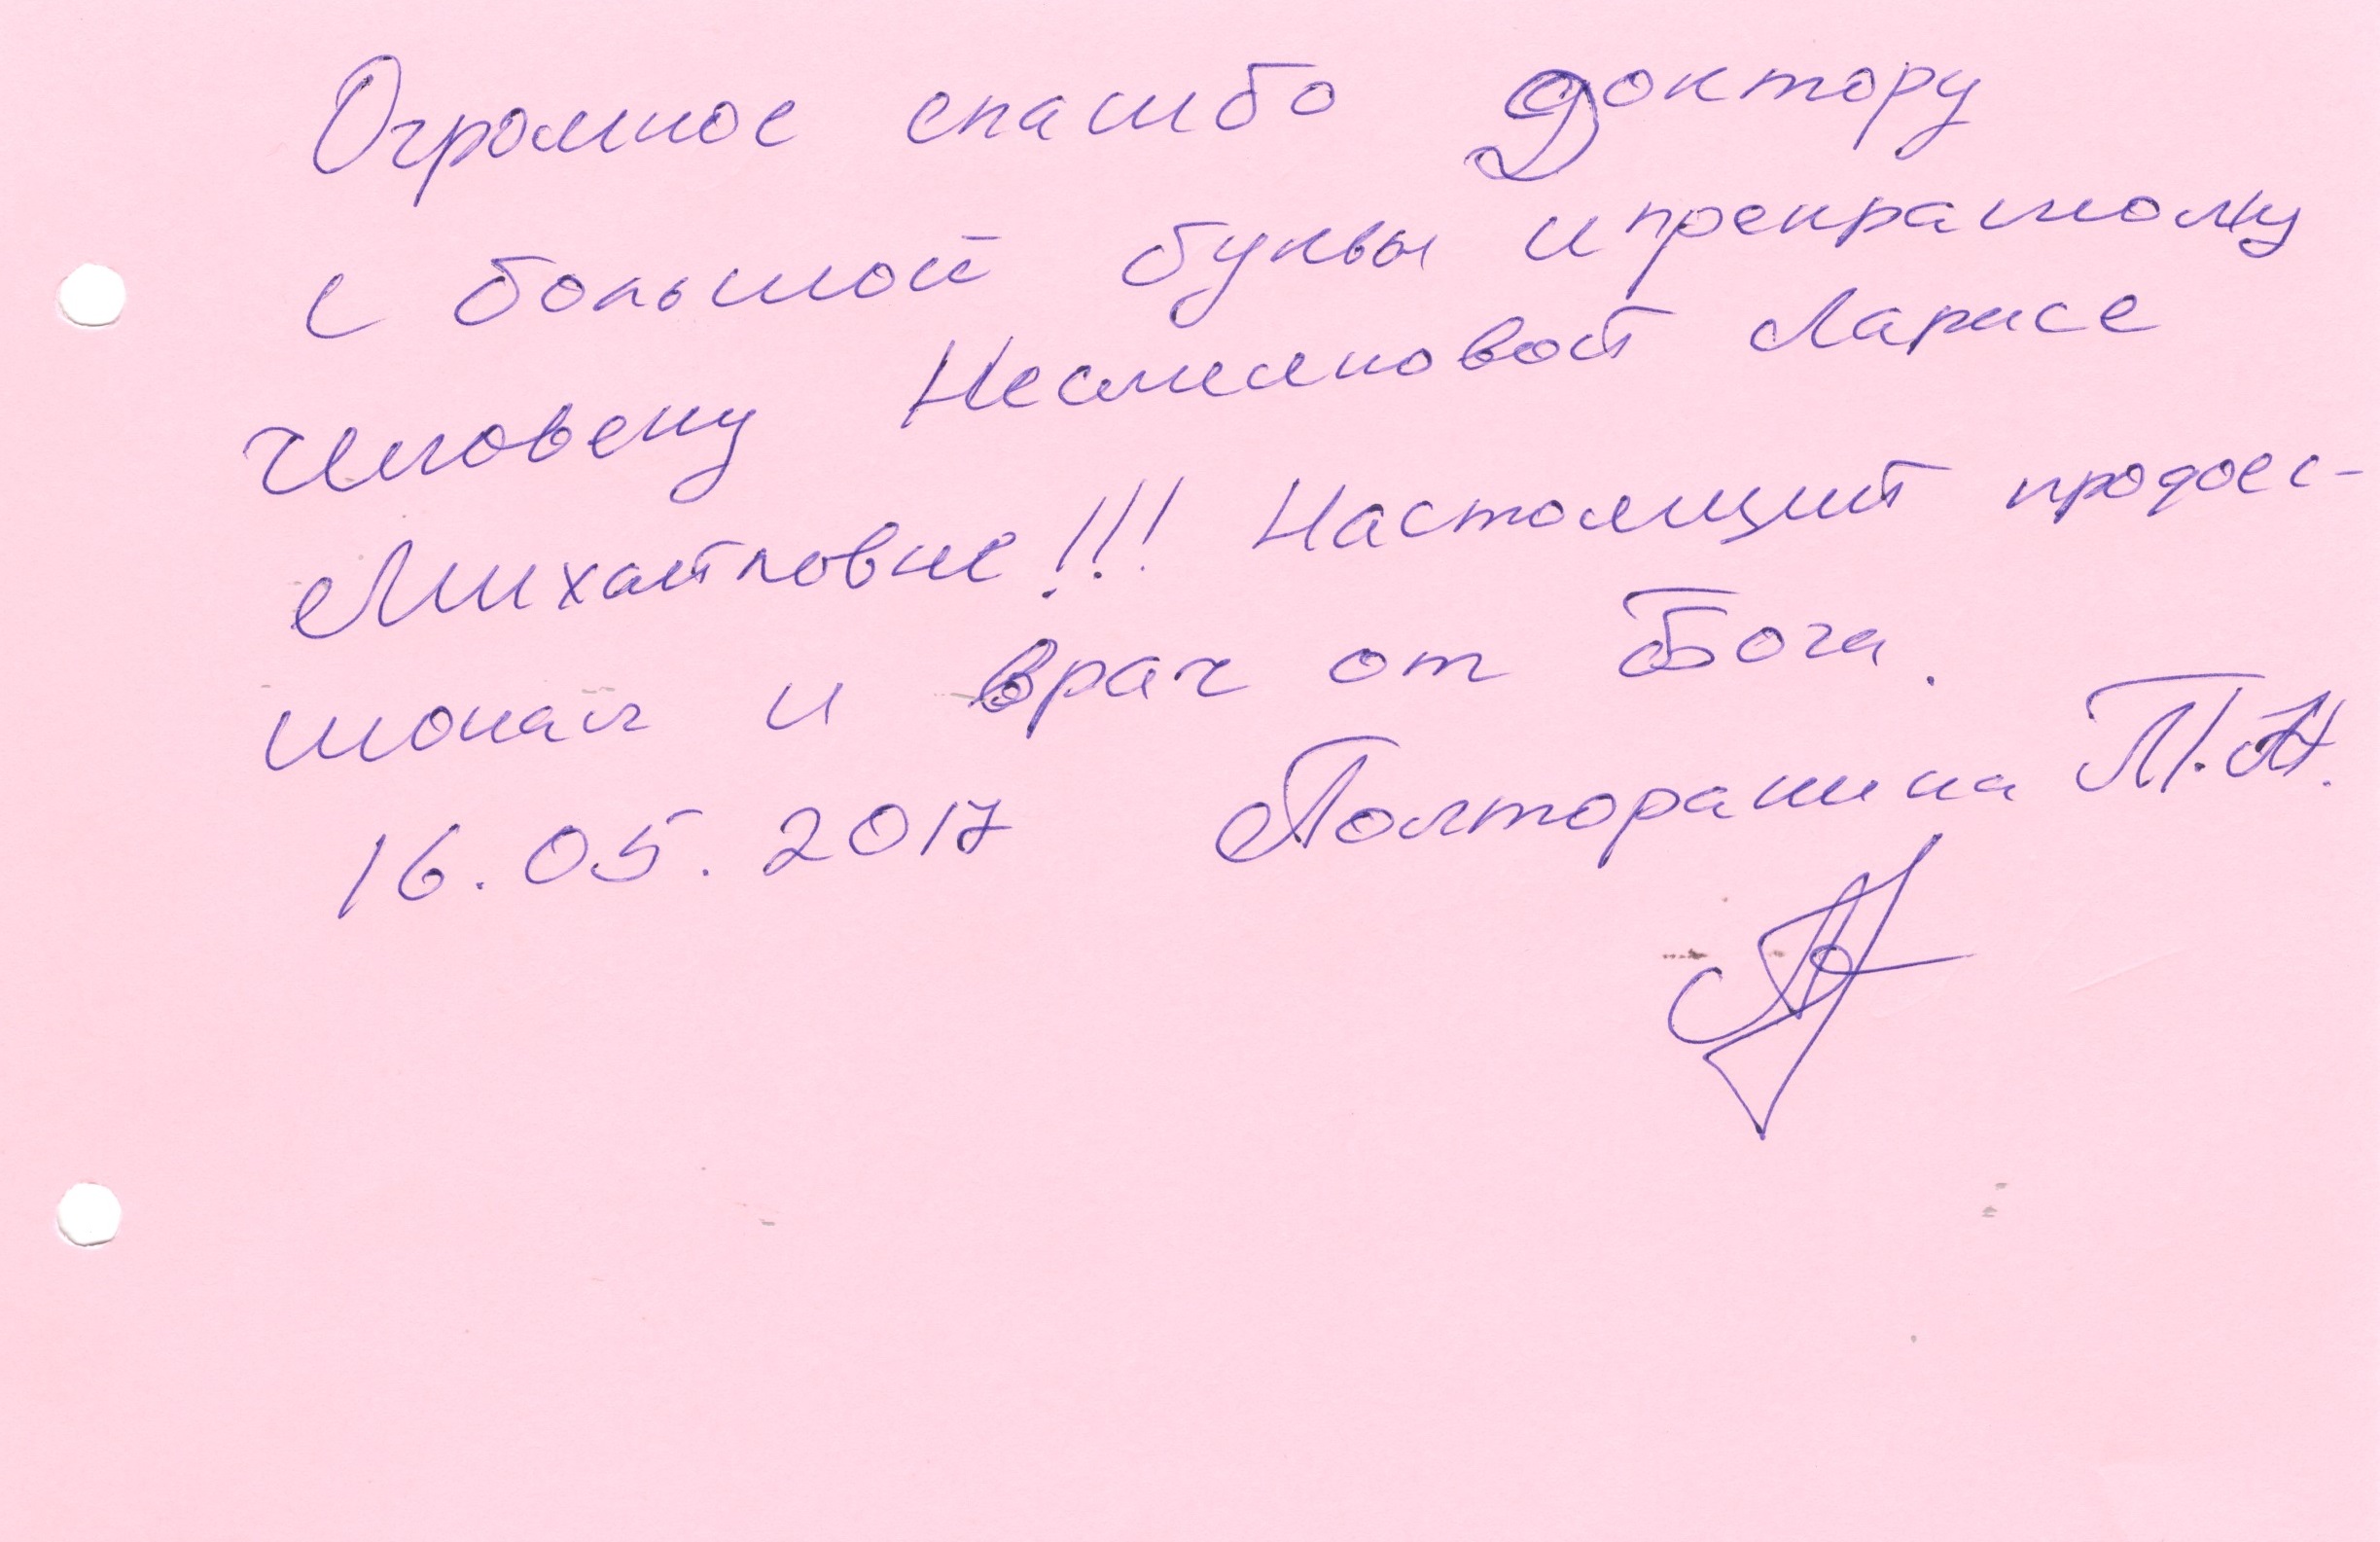 Огромное спасибо Доктору
с большой буквы и прекрасному
человеку Несмеяновой Ларисе
Михайловне!!! Настоящий профес-
сионал и врач от Бога.
16.05.2017 Полторанина Т.Н.